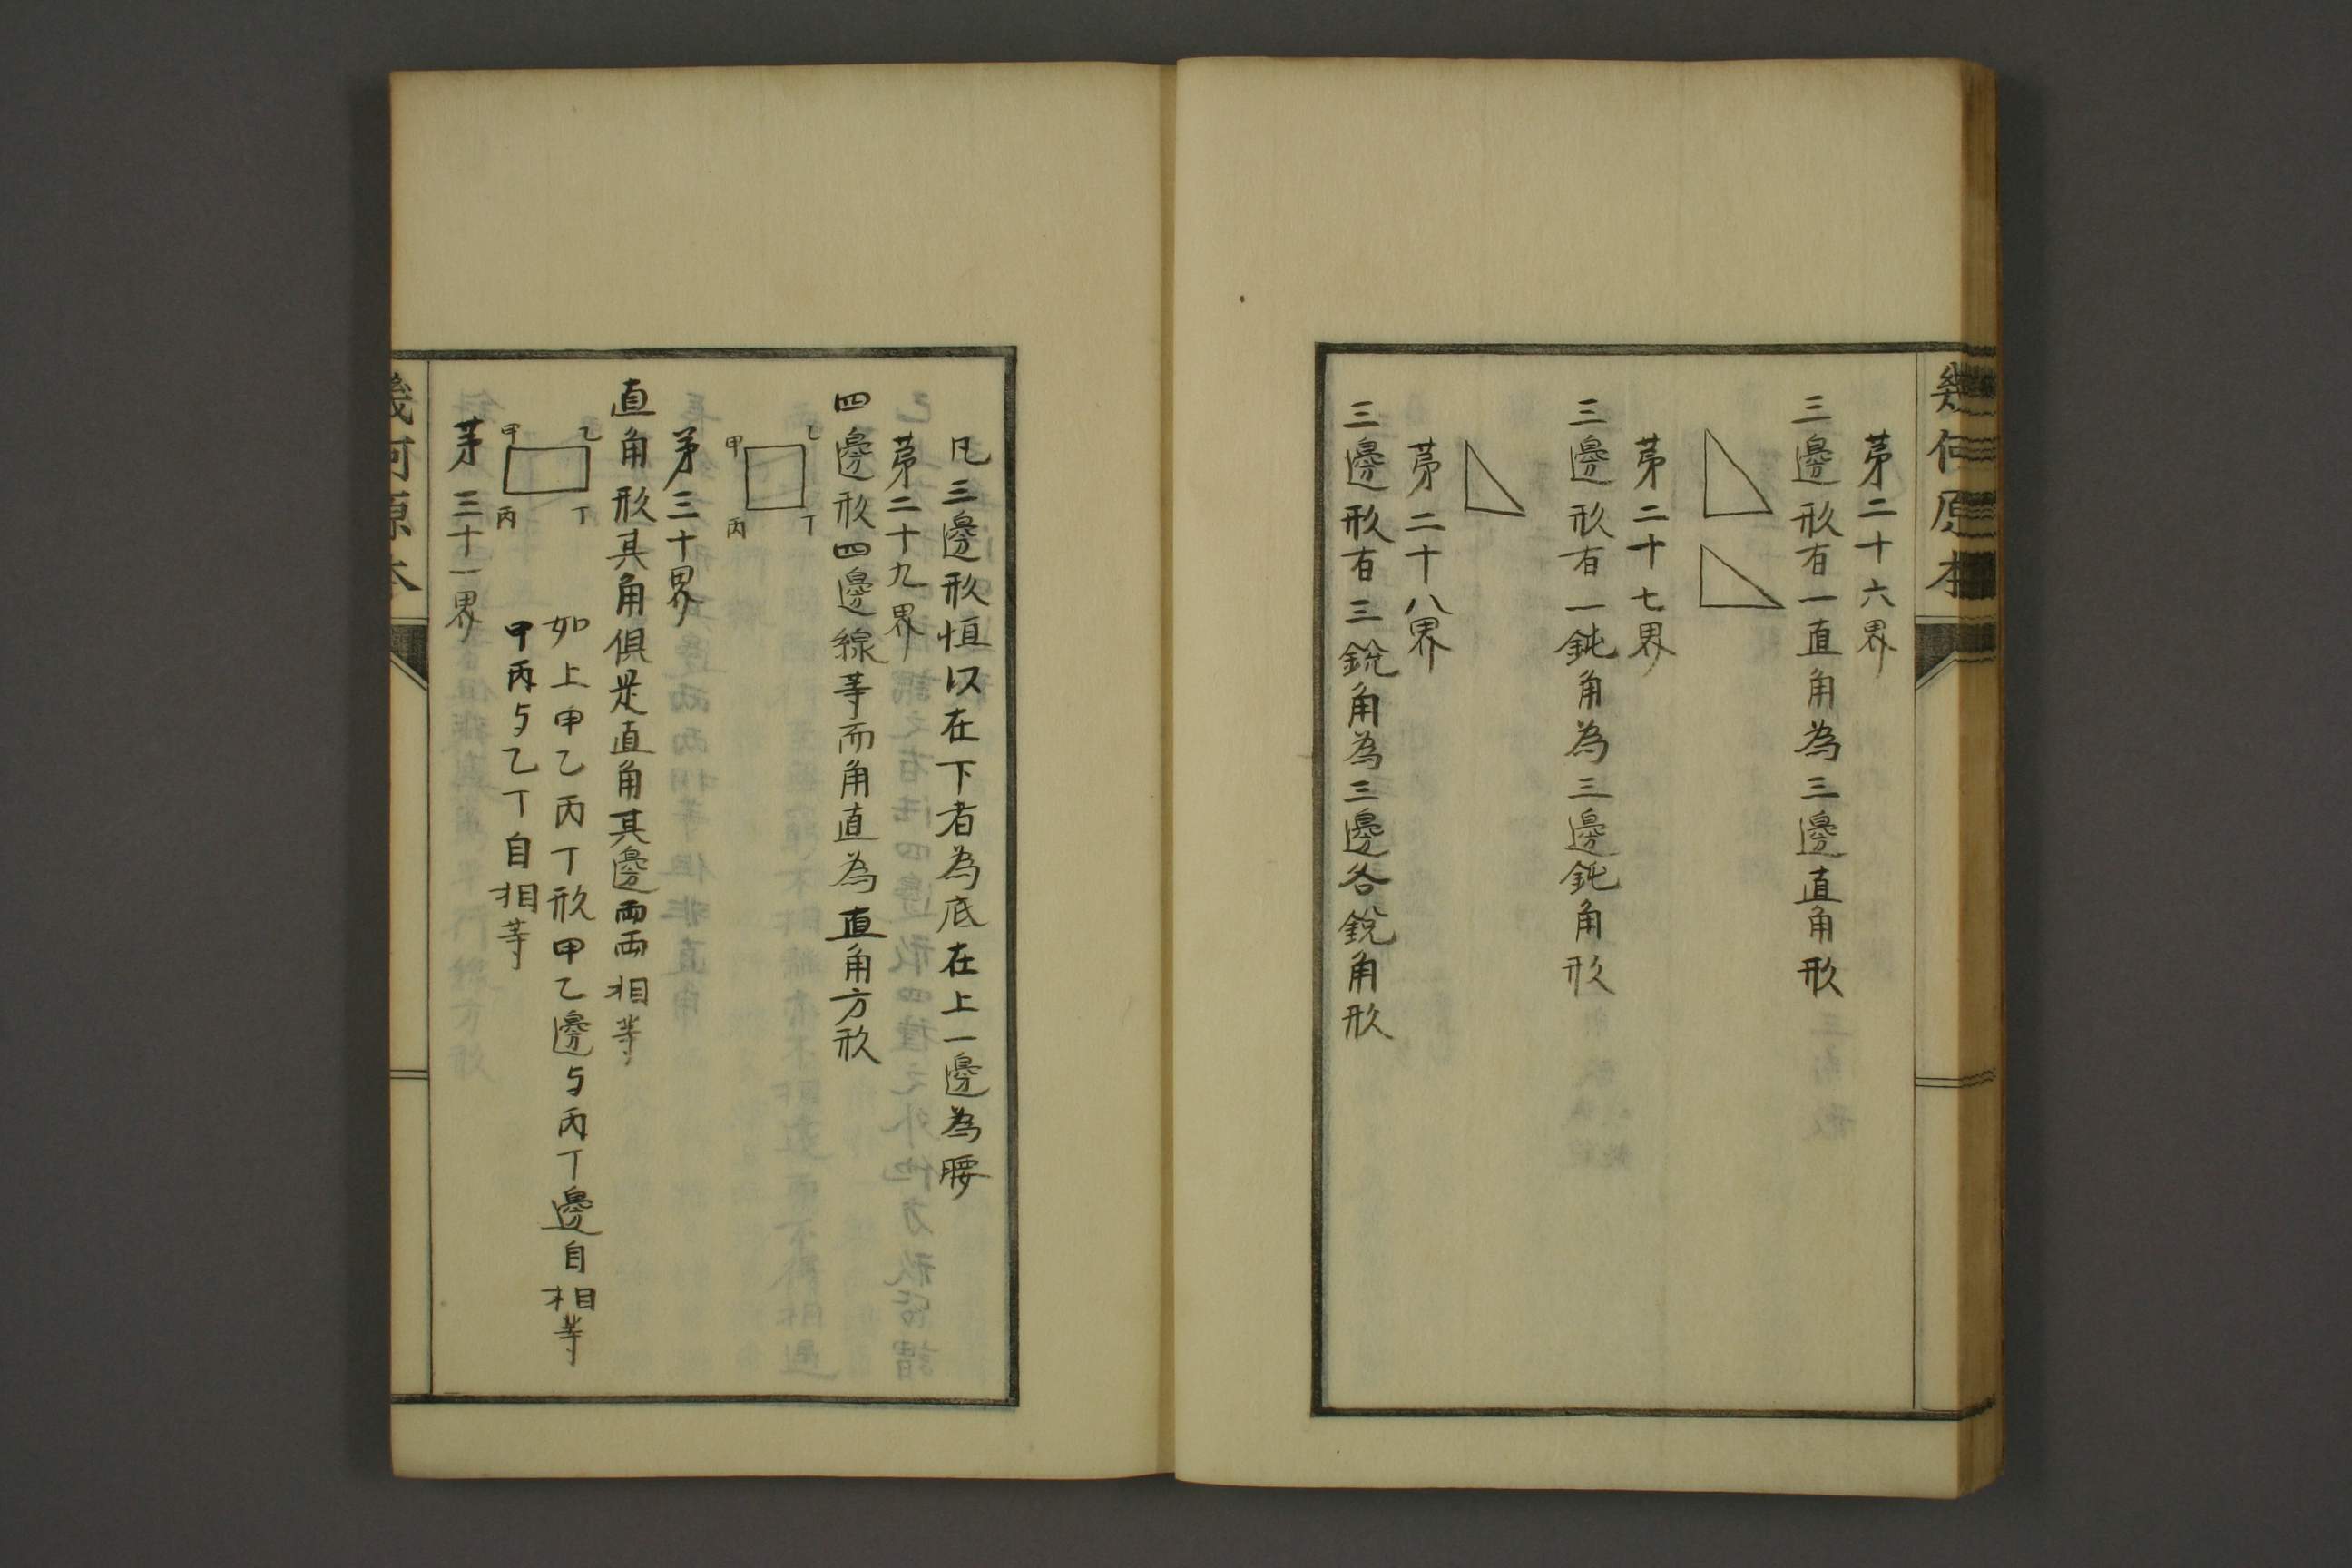 幾何原本
第二十六界
三邊形有一直角為三邊直角形
第二十七界
三邊形有一鈍角為三邊鈍角形
第二十八界
三邊形有三銳角為三邊各銳角形
凡三邊形恒以在下者為底在上一邊為腰
第二十九界
四邊形四邊線等而角直為直角方形
乙
甲
丁
丙
第三十界
直角形其角俱是直角其邊兩兩相等
乙
甲
丁
丙
如上甲乙丙丁形甲乙邊与丙丁邊自相等
甲丙与乙丁自相等
第三十一界
幾何原本